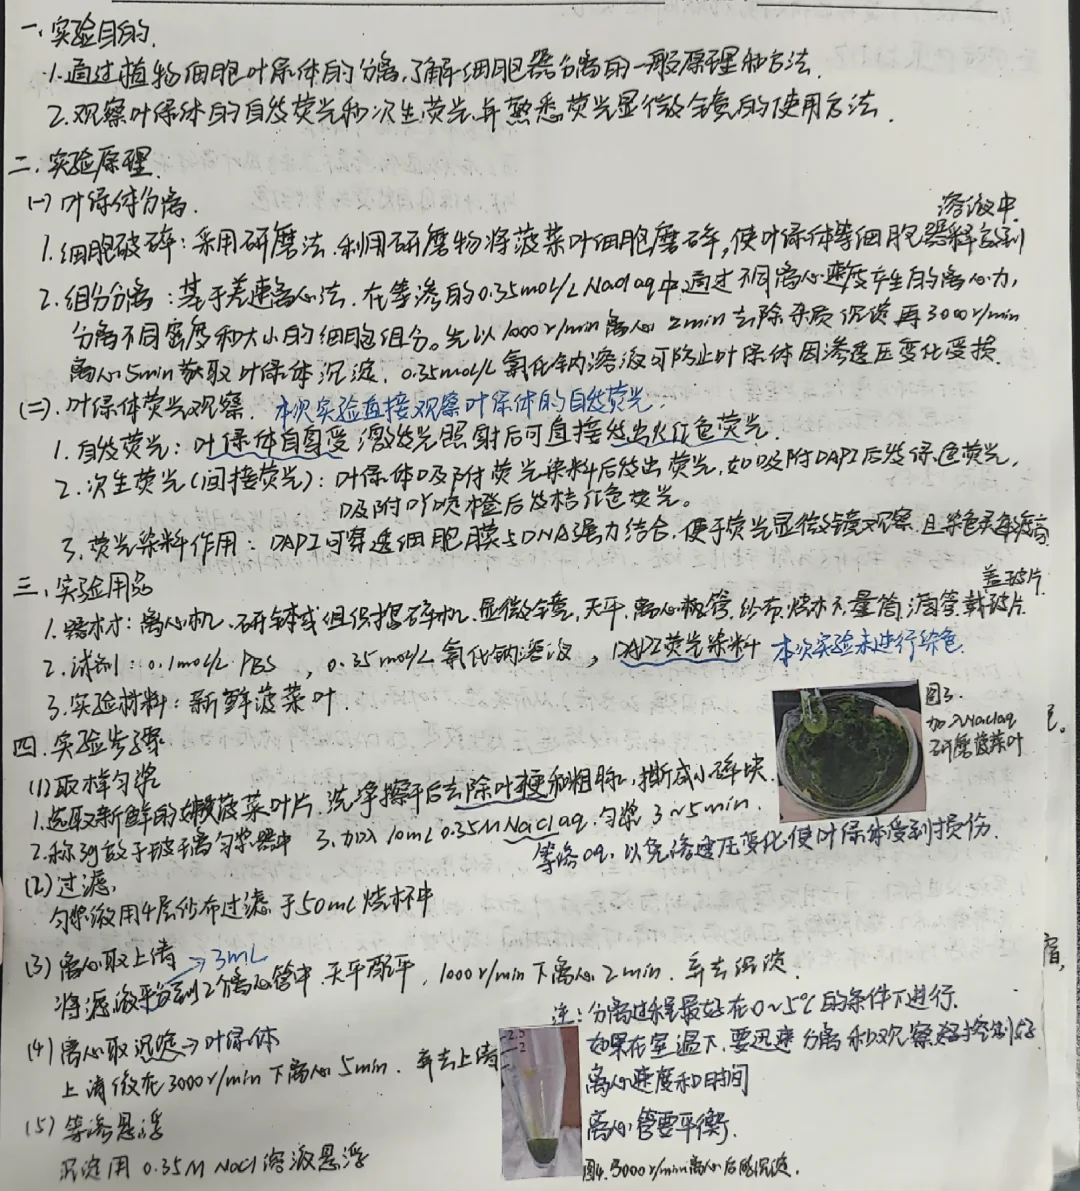 一、实验目的.
1.通过植物细胞叶绿体的分离,了解细胞器分离的一般原理和方法.
2.观察叶绿体的自发荧光和次生荧光,并熟悉荧光显微镜的使用方法.
二、实验原理.
(一)叶绿体分离.
溶液中.
1.细胞破碎:采用研磨法.利用研磨物将菠菜叶细胞磨碎,使叶绿体等细胞器释放到
2.组分分离:基于差速离心法.在等渗的0.35mol/L NaClaq中,通过不同离心速度产生的离心力,
分离不同密度和大小的细胞组分。先以1000r/min离心2min去除杂质沉淀再3000r/min
离心5min获取叶绿体沉淀.0.35mol/L氯化钠溶液可防止叶绿体因渗透压变化受损.
(二).叶绿体荧光观察.本次实验直接观察叶绿体的自发荧光.
1.自发荧光:叶绿体自身受激发光照射后可直接发出火红色荧光.
2.次生荧光(间接荧光):叶绿体吸附荧光染料后发出荧光,如吸附DAPI后发绿色荧光,
吸附吖啶橙后发桔红色荧光。
3.荧光染料作用:DAPI可穿透细胞膜与DNA强力结合,便于荧光显微镜观察,且染色灵敏度高
三、实验用品
盖玻片.
1.器材:离心机、研钵或组织捣碎机、显微镜,天平,离心管,纱布,烧杯,量筒,滴管,载玻片
2.试剂:0.1mol/L PBS,0.35mol/L氯化钠溶液,DAPI荧光染料 本次实验未进行染色.
3.实验材料:新鲜菠菜叶.
图3.
加入NaClaq
研磨菠菜叶
四、实验步骤
(1)取样匀浆
1.选取新鲜的嫩菠菜叶片,洗净擦干后去除叶梗和粗脉,撕成小碎块.
2.称3g放于玻璃匀浆器中 3.加入10mL 0.35M NaClaq.匀浆3~5min.
等渗aq,以免渗透压变化,使叶绿体受到损伤.
(2)过滤.
匀浆液用4层纱布过滤于50mL烧杯中
(3)离心取上清 → 3mL
将滤液平分到2个离心管中.天平配平,1000r/min下离心2min.弃去沉淀.
注:分离过程最好在0~5℃的条件下进行.
如果在室温下,要迅速分离和观察
离心速度和时间
离心管要平衡.
(4)离心取沉淀→叶绿体
上清液在3000r/min下离心5min.弃去上清
(5)等渗悬浮
沉淀用0.35M NaCl溶液悬浮
图4.3000r/min离心后的沉淀.